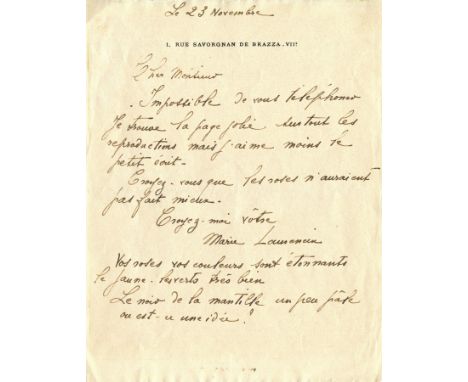 Le 23 Novembre
1, RUE SAVORGNAN DE BRAZZA . VIIᵉ
Cher Monsieur
Impossible de vous téléphoner
Je trouve la page jolie surtout les
reproductions mais j'aime moins le
petit écrit -
Croyez-vous que les roses n'auraient
pas fait mieux.
Croyez-moi vôtre
Marie Laurencin
Vos roses vos couleurs sont étonnants
le jaune - les verts très bien
Le noir de la mantille un peu pâle
ou est-ce une idée ?